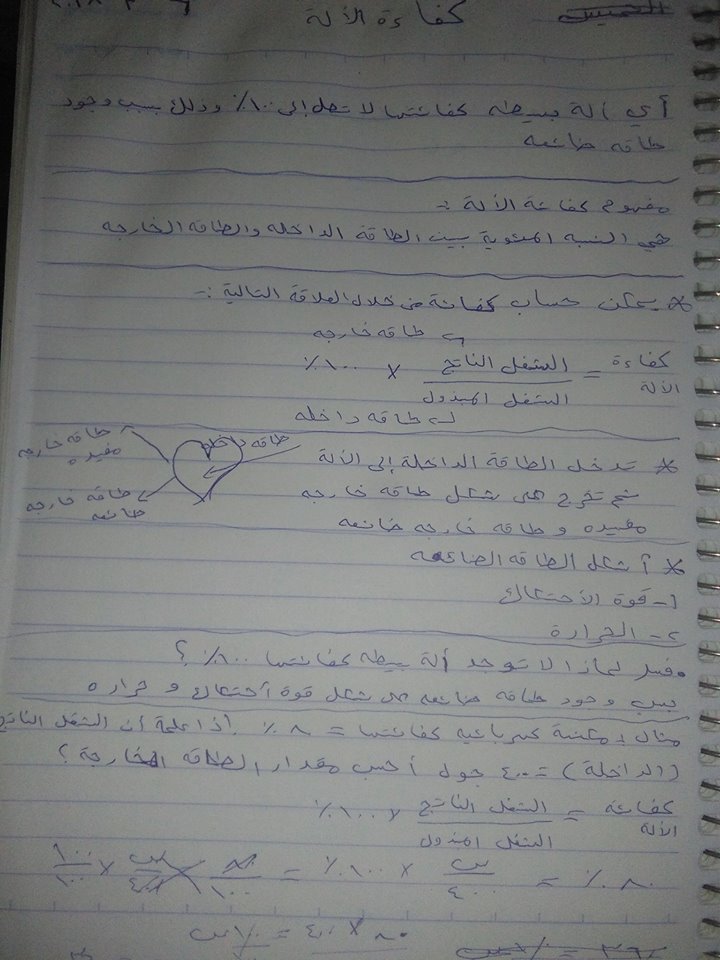 كفاءة الألة
أي الة بسيطه كفائتها لا تصل إلى ١٠٠٪ وذلك بسبب وجود
طاقه ضائعه
مفهوم كفائة الألة :-
هي النسبه المئوية بين الطاقة الداخله والطاقه الخارجه
* يمكن حساب كفائة من خلال العلاقة التالية :-
طاقه خارجه
كفاءة الألة = الشغل الناتج / الشغل المبذول × ١٠٠٪
طاقه داخله
* تدخل الطاقة الداخلة إلى الألة
ثم تخرج على شكل طاقه خارجه
مفيده و طاقه خارجه ضائعه
طاقه داخله
طاقه خارجه
مفيده
طاقه خارجه
ضائعه
* أشكل الطاقه الضائعه
١- قوة الأحتكاك
٢- الحرارة
فسر لماذا لا توجد ألة بسيطه كفائتها ١٠٠٪ ؟
بسبب وجود طاقه ضائعه على شكل قوة أحتكاك و حراره
مثال : مكنسة كهربائيه كفائتها = ٨٠٪ . أذا علمة أن الشغل الناتج
(الداخلة) = ٤٠٠ جول أحسب مقدار الطاقه الخارجة ؟
كفائة الألة = الشغل الناتج / الشغل المبذول × ١٠٠٪
٨٠٪ = س / ٤٠٠ × ١٠٠٪ = ٨٠ / ١٠٠ س / ٤٠٠ × ١٠٠ / ١٠٠
٨٠ × ٤٠٠ = ١٠٠س